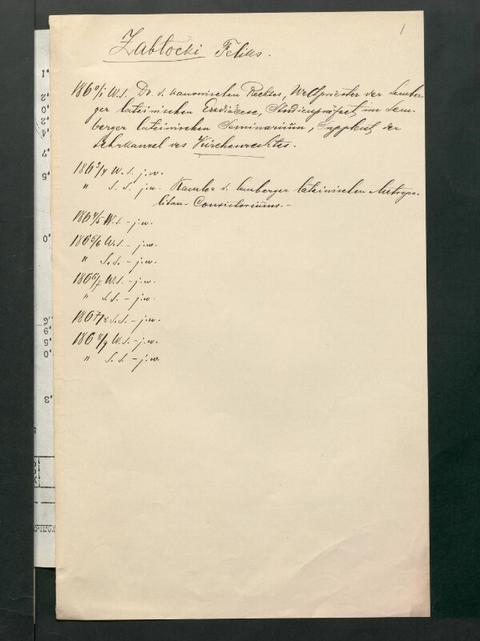 1
Zabłocki Feliks.
1860/1 W.S. Dr. d. kanonischen Rechtes, Weltpriester der Lember-
ger lateinischen Erzdiözese, Studienpräfect im Lem-
berger lateinischen Seminarium, Supplent der
Lehrkanzel des Kirchenrechtes.
W.S. j.w.
" S.S. j.w. Kanzler d. Lemberger lateinischen Metropo-
litan-Consistoriums.-
1864/5 W.S. - j.w.
1865/6 W.S. - j.w.
" S.S. - j.w.
1866/7 W.S. - j.w.
" S.S. - j.w.
1867/8 S.S. - j.w.
1868/9 W.S. - j.w.
" S.S. - j.w.